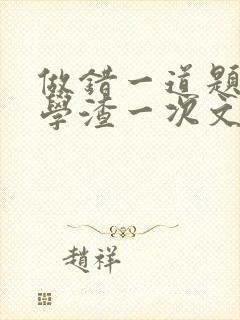 做錯一道題
學渣一次文
趙祥